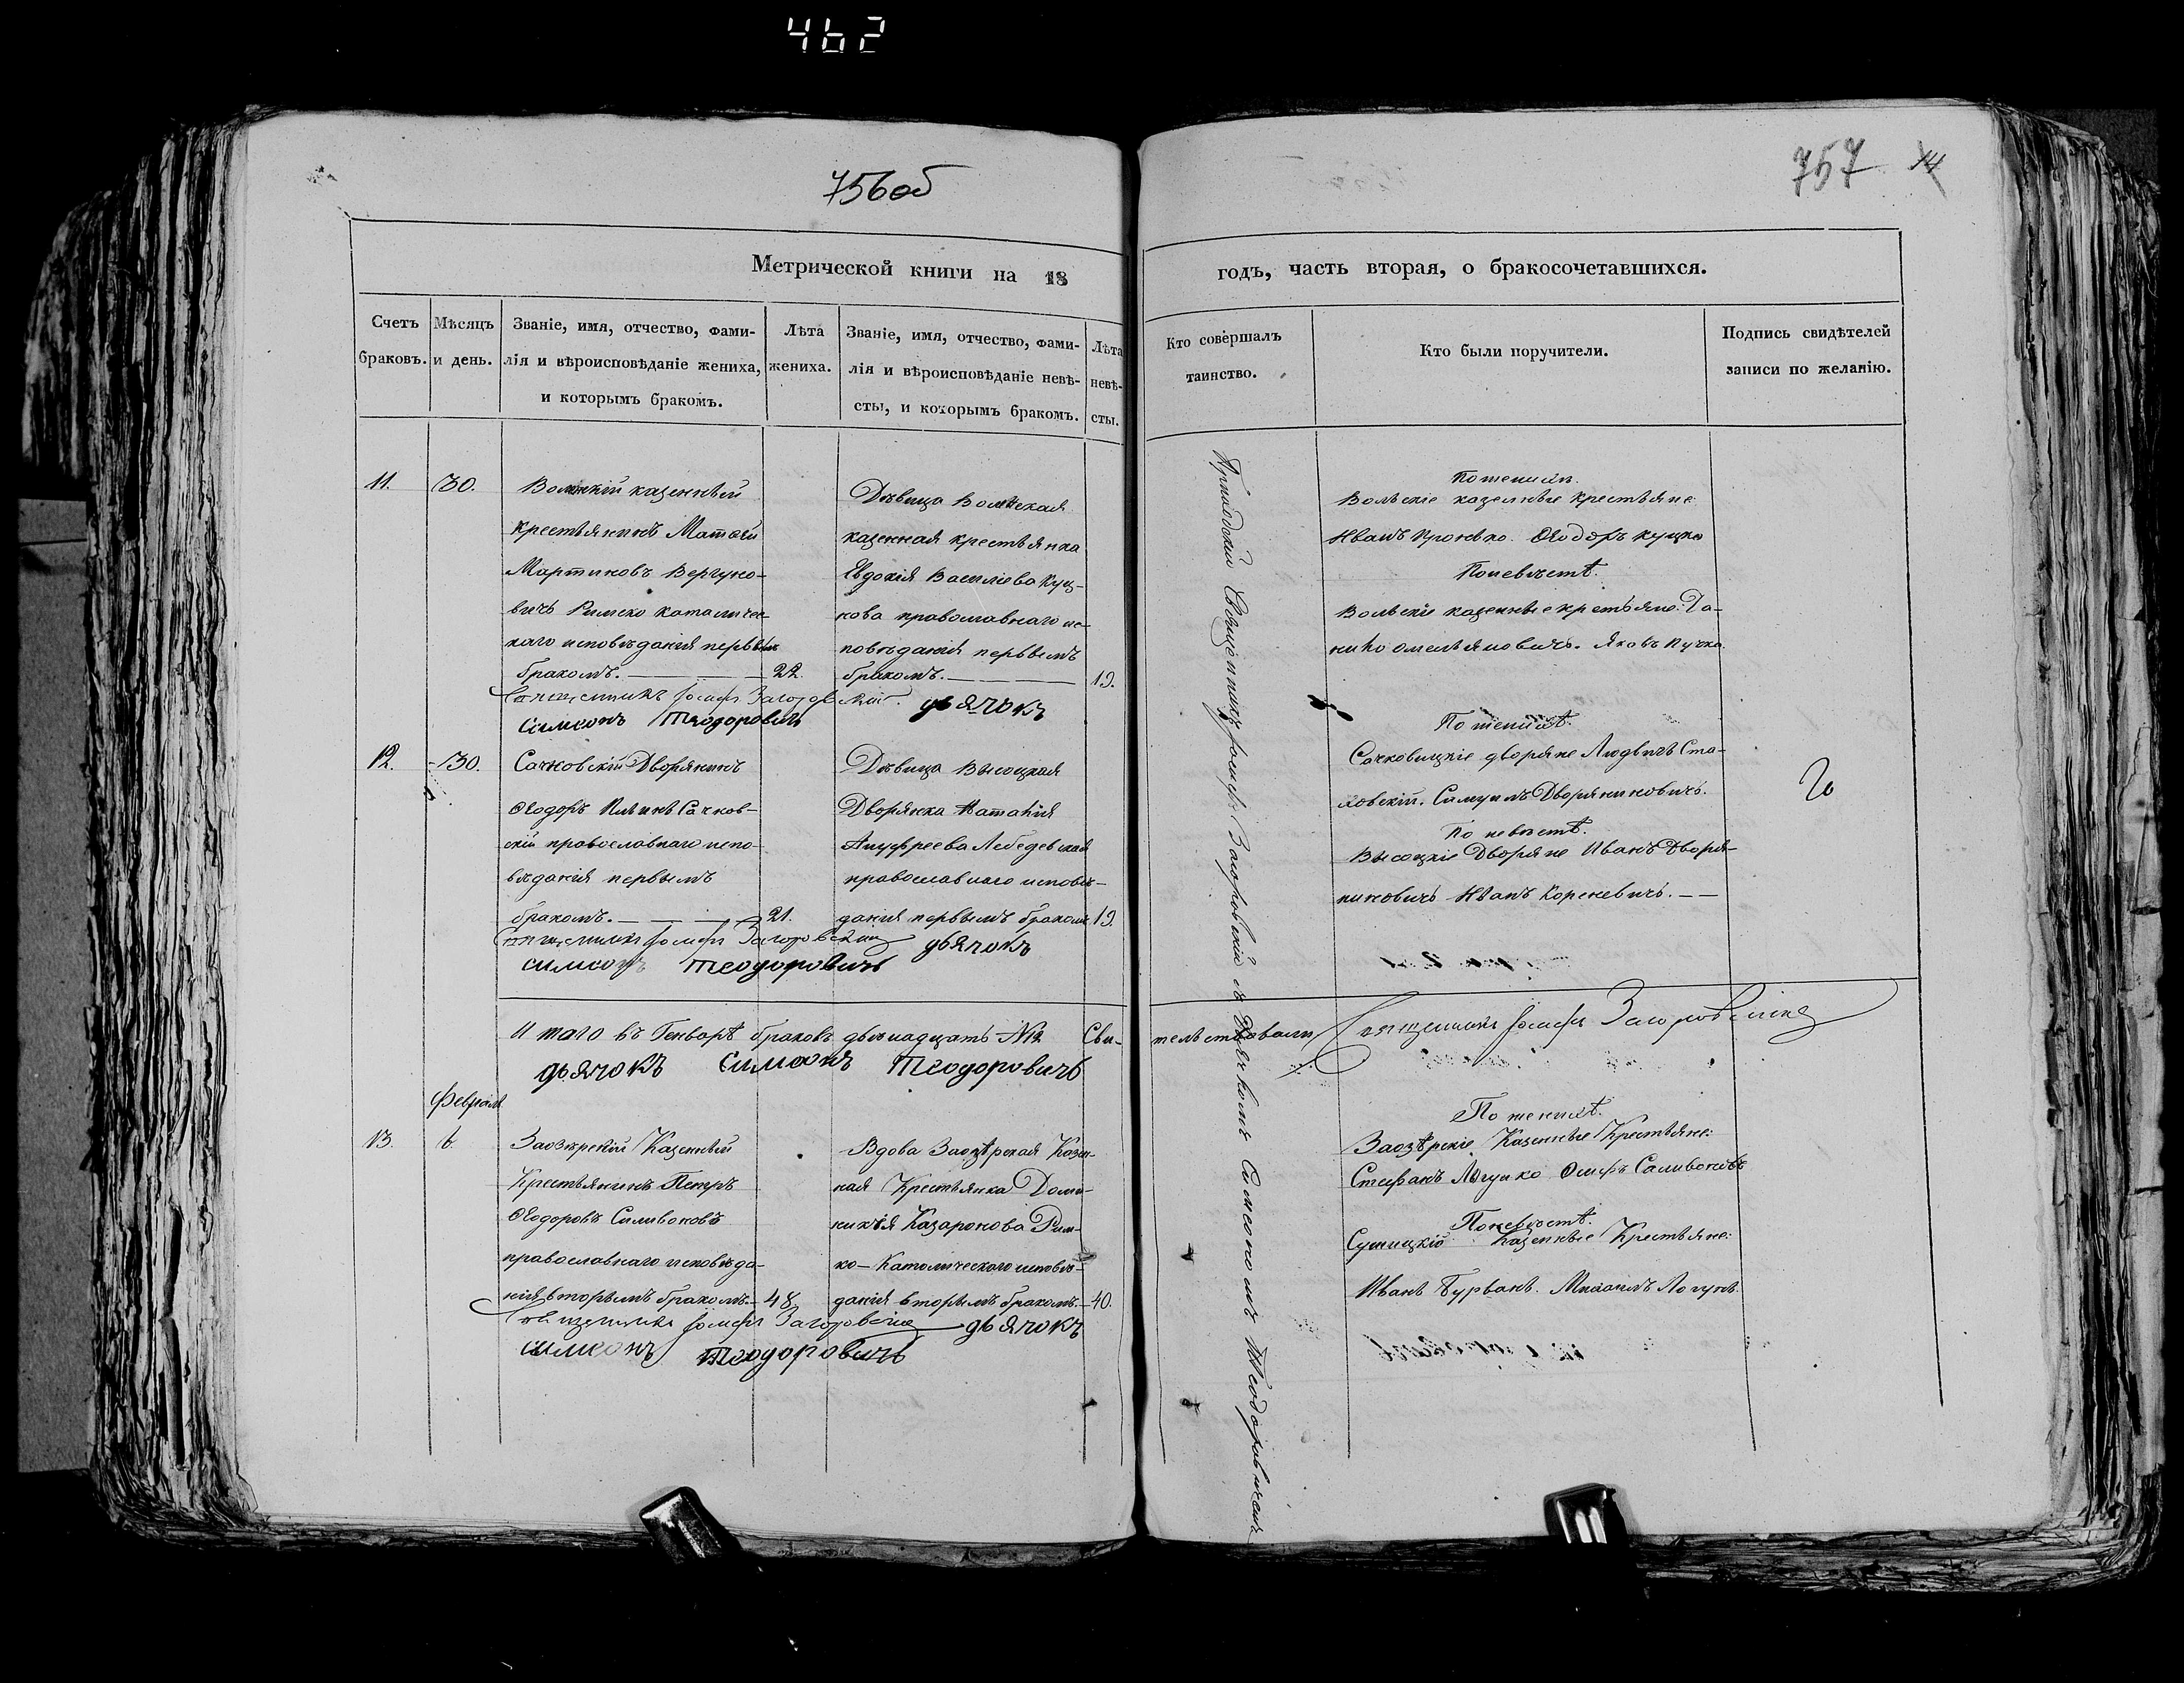 462
756об
757 14
Метрической книги на 18
годъ, часть вторая, о бракосочетавшихся.
Счетъ браковъ.
Мѣсяцъ и день.
Званіе, имя, отчество, фами-
лія и вѣроисповѣданіе жениха,
и которымъ бракомъ.
Лѣта
жениха.
Званіе, имя, отчество, фами-
лія и вѣроисповѣданіе невѣ-
сты, и которымъ бракомъ.
Лѣта
невѣ-
сты.
Кто совершалъ
таинство.
Кто были поручители.
Подпись свидѣтелей
записи по желанію.
11. 30.
казенный
крестьянинъ Матѳей
Мартиновъ Вергуно-
вичъ Римско католичес-
каго исповѣданія первымъ
бракомъ. 22.
Священникъ Іосифъ Загоровскій. дьячокъ
Симеонъ Теодоровичъ
Дѣвица Вольская
казенная крестьянка
Евдокія Василіева Куц-
кова православнаго ис-
повѣданія первымъ
бракомъ. 19.
Приходскій Священникъ Іосифъ Загоровскій съ Дьячкомъ Симеономъ Теодоровичемъ
По женихѣ.
Вольскіе казенные крестьяне
Иванъ Кроневко. Ѳеодоръ Куцко
По невѣстѣ.
Вольскіе казенные крестьяне: Да-
нило Омельяновичъ. Яковъ Пучко.
12. 30.
Сачковскій Дворянинъ
Ѳеодоръ Ильинъ Сачков-
скій православнаго испо-
вѣданія первымъ
бракомъ. 21.
Священникъ Іосифъ Загоровскій дьячокъ
Симеонъ Теодоровичъ
Дѣвица Высоцкая
Дворянка Наталія
Ануфреева Лебедевская
православнаго исповѣ-
данія первымъ бракомъ 19.
По женихѣ.
Сачковицкіе дворяне Людвигъ Ста-
ховскій. Самуилъ Дворяниновичъ.
По невѣстѣ.
Высоцкіе Дворяне Иванъ Дворя-
ниновичъ Иванъ Кореневичъ.
Итого въ Генварѣ браковъ двѣнадцать №12 Сви-
тельствовали Священникъ Іосифъ Загоровскій
дьячокъ Симеонъ Теодоровичъ
Февраля
13. 6.
Заозерскій Казенный
Крестьянинъ Петръ
Ѳеодоровъ Саливоновъ
православнаго исповѣда-
нія вторымъ бракомъ. 48
Священникъ Іосифъ Загоровскій дьячокъ
Симеонъ Теодоровичъ
Вдова Заозѣрская Казен-
ная Крестьянка Доми-
никія Казаронова Рим-
ко-Католическаго исповѣ-
данія вторымъ бракомъ. 40.
По женихѣ.
Заозѣрскіе Казенные Крестьяне:
Стефанъ Логунко Осифъ Саливоновъ
По невѣстѣ.
Казенные Крестьяне:
Иванъ Бурванъ. Михаилъ Логунъ.